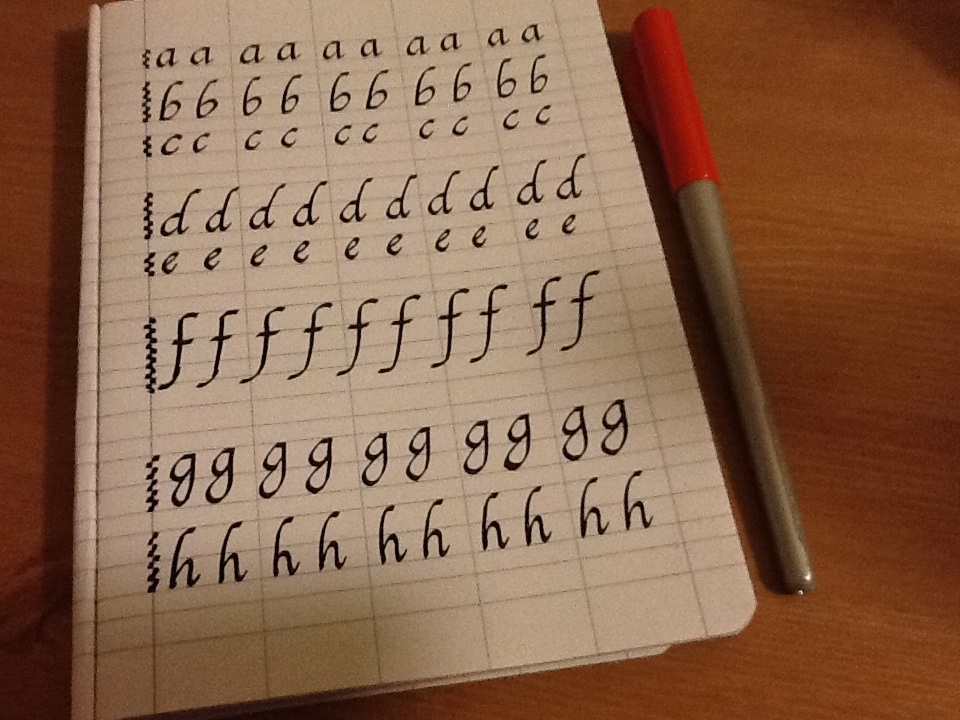 a a a a a a a a a a
b b b b b b b b b b
c c c c c c c c c c
d d d d d d d d d d
e e e e e e e e e e
f f f f f f f f f f
g g g g g g g g g g
h h h h h h h h h h